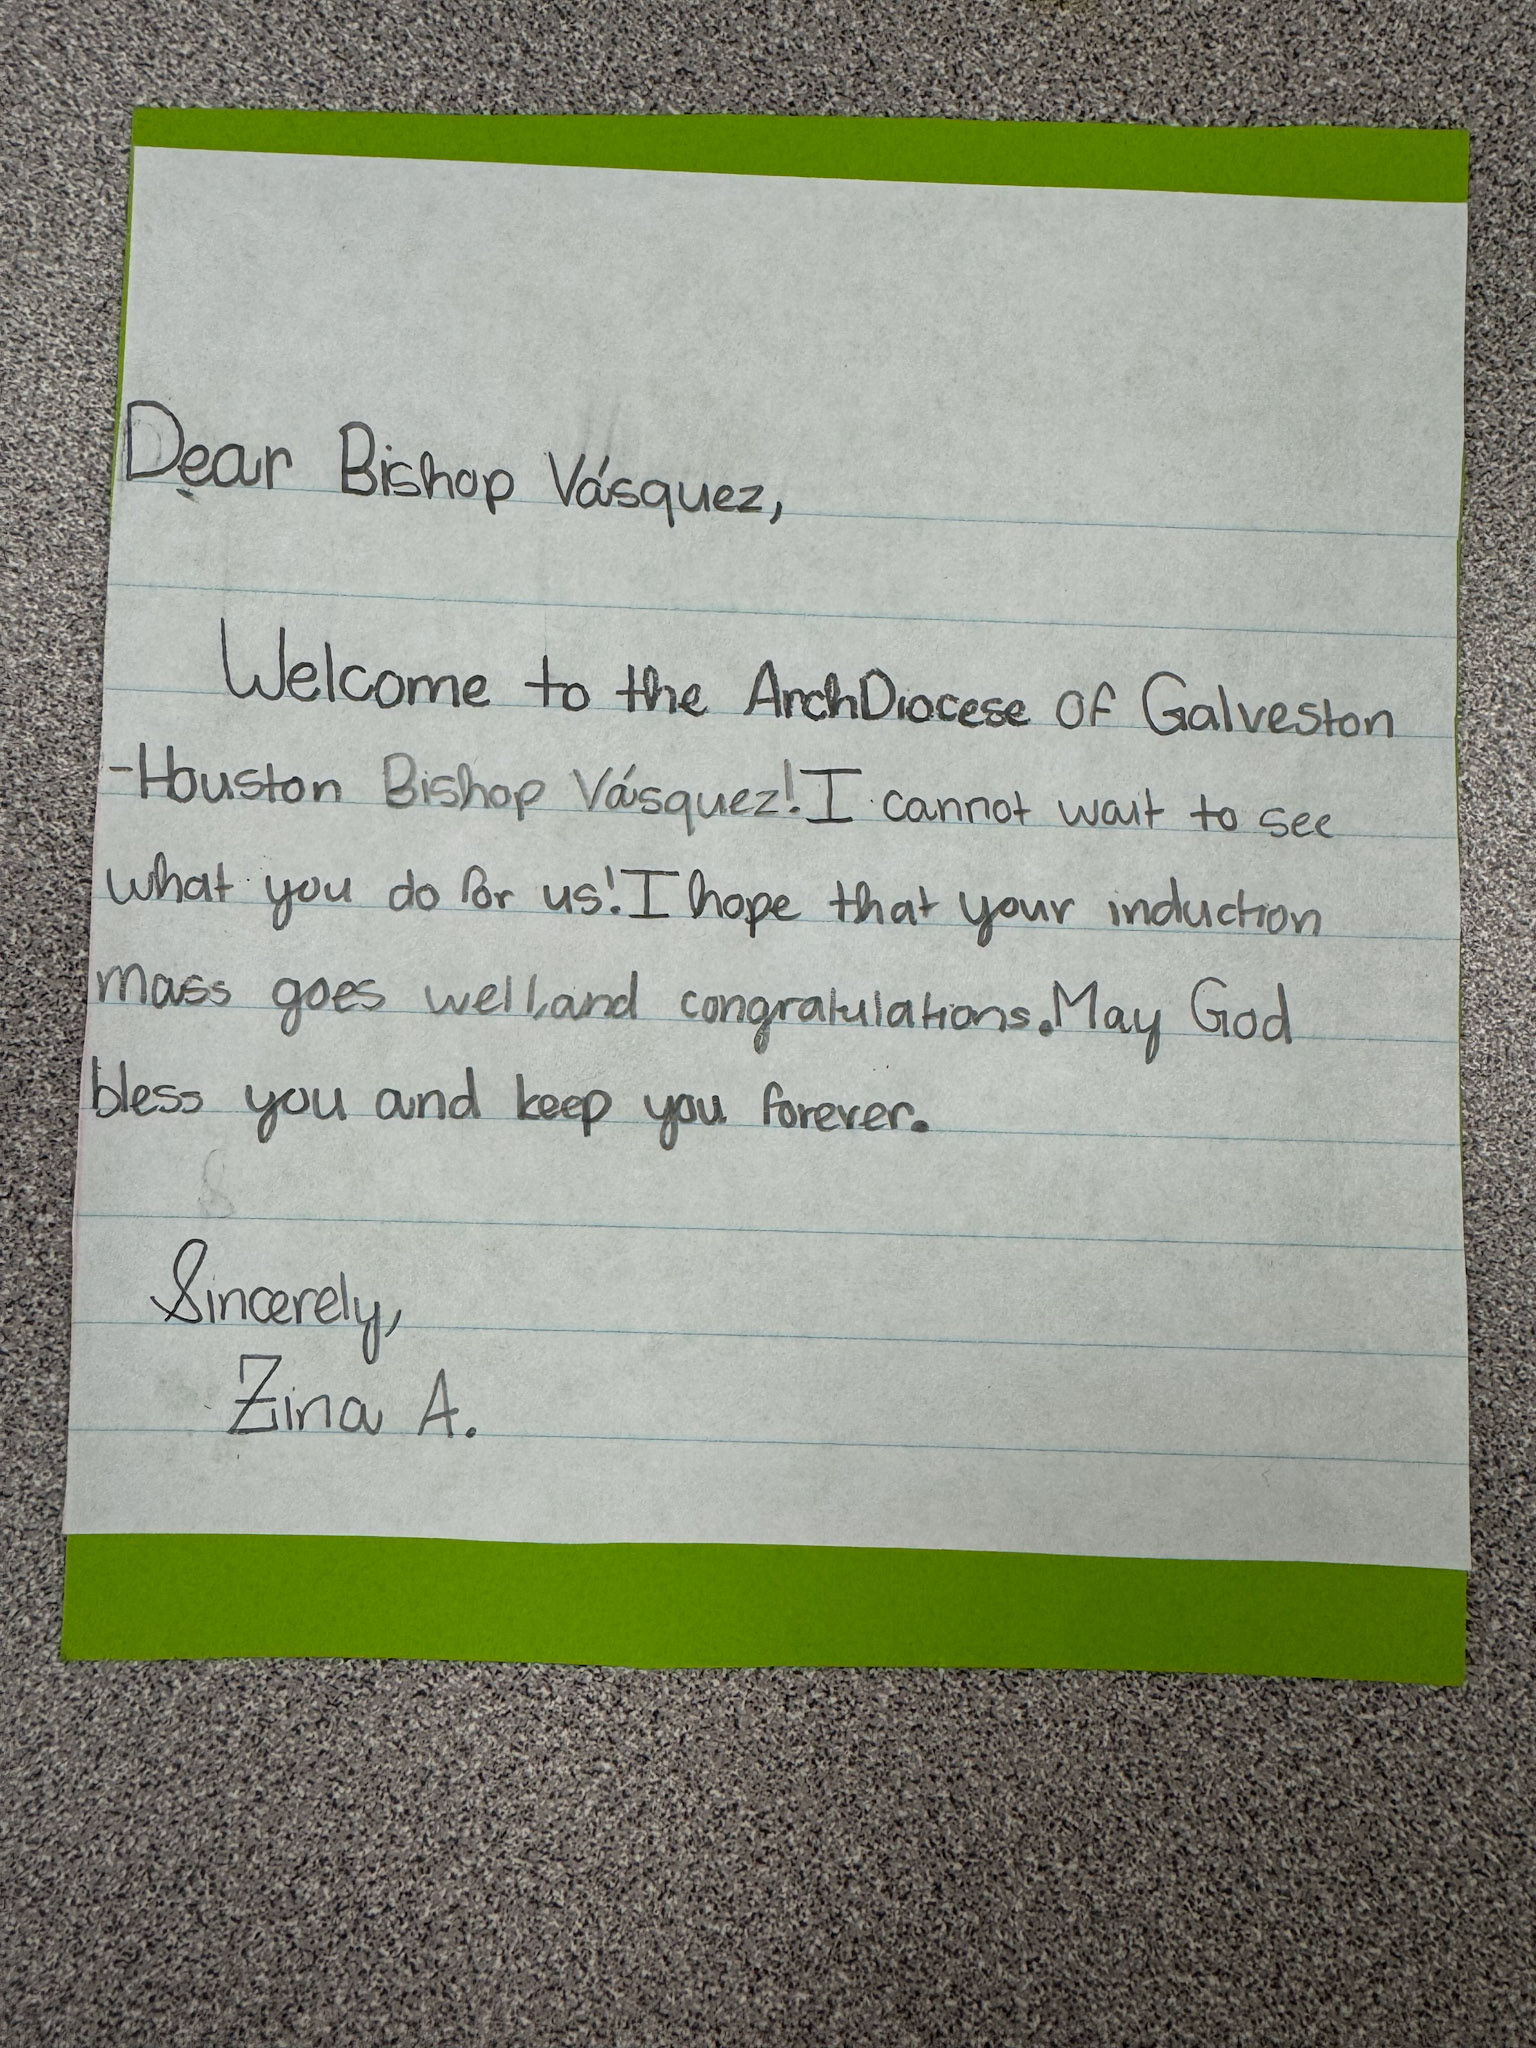 Dear Bishop Vásquez,
Welcome to the ArchDiocese of Galveston
-Houston Bishop Vásquez! I cannot wait to see
what you do for us! I hope that your induction
mass goes well, and congratulations. May God
bless you and keep you forever.
Sincerely,
Zina A.